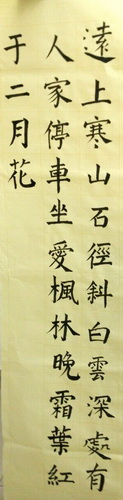 遠上寒山石徑斜白雲深處有
人家停車坐愛楓林晚霜葉紅
于二月花